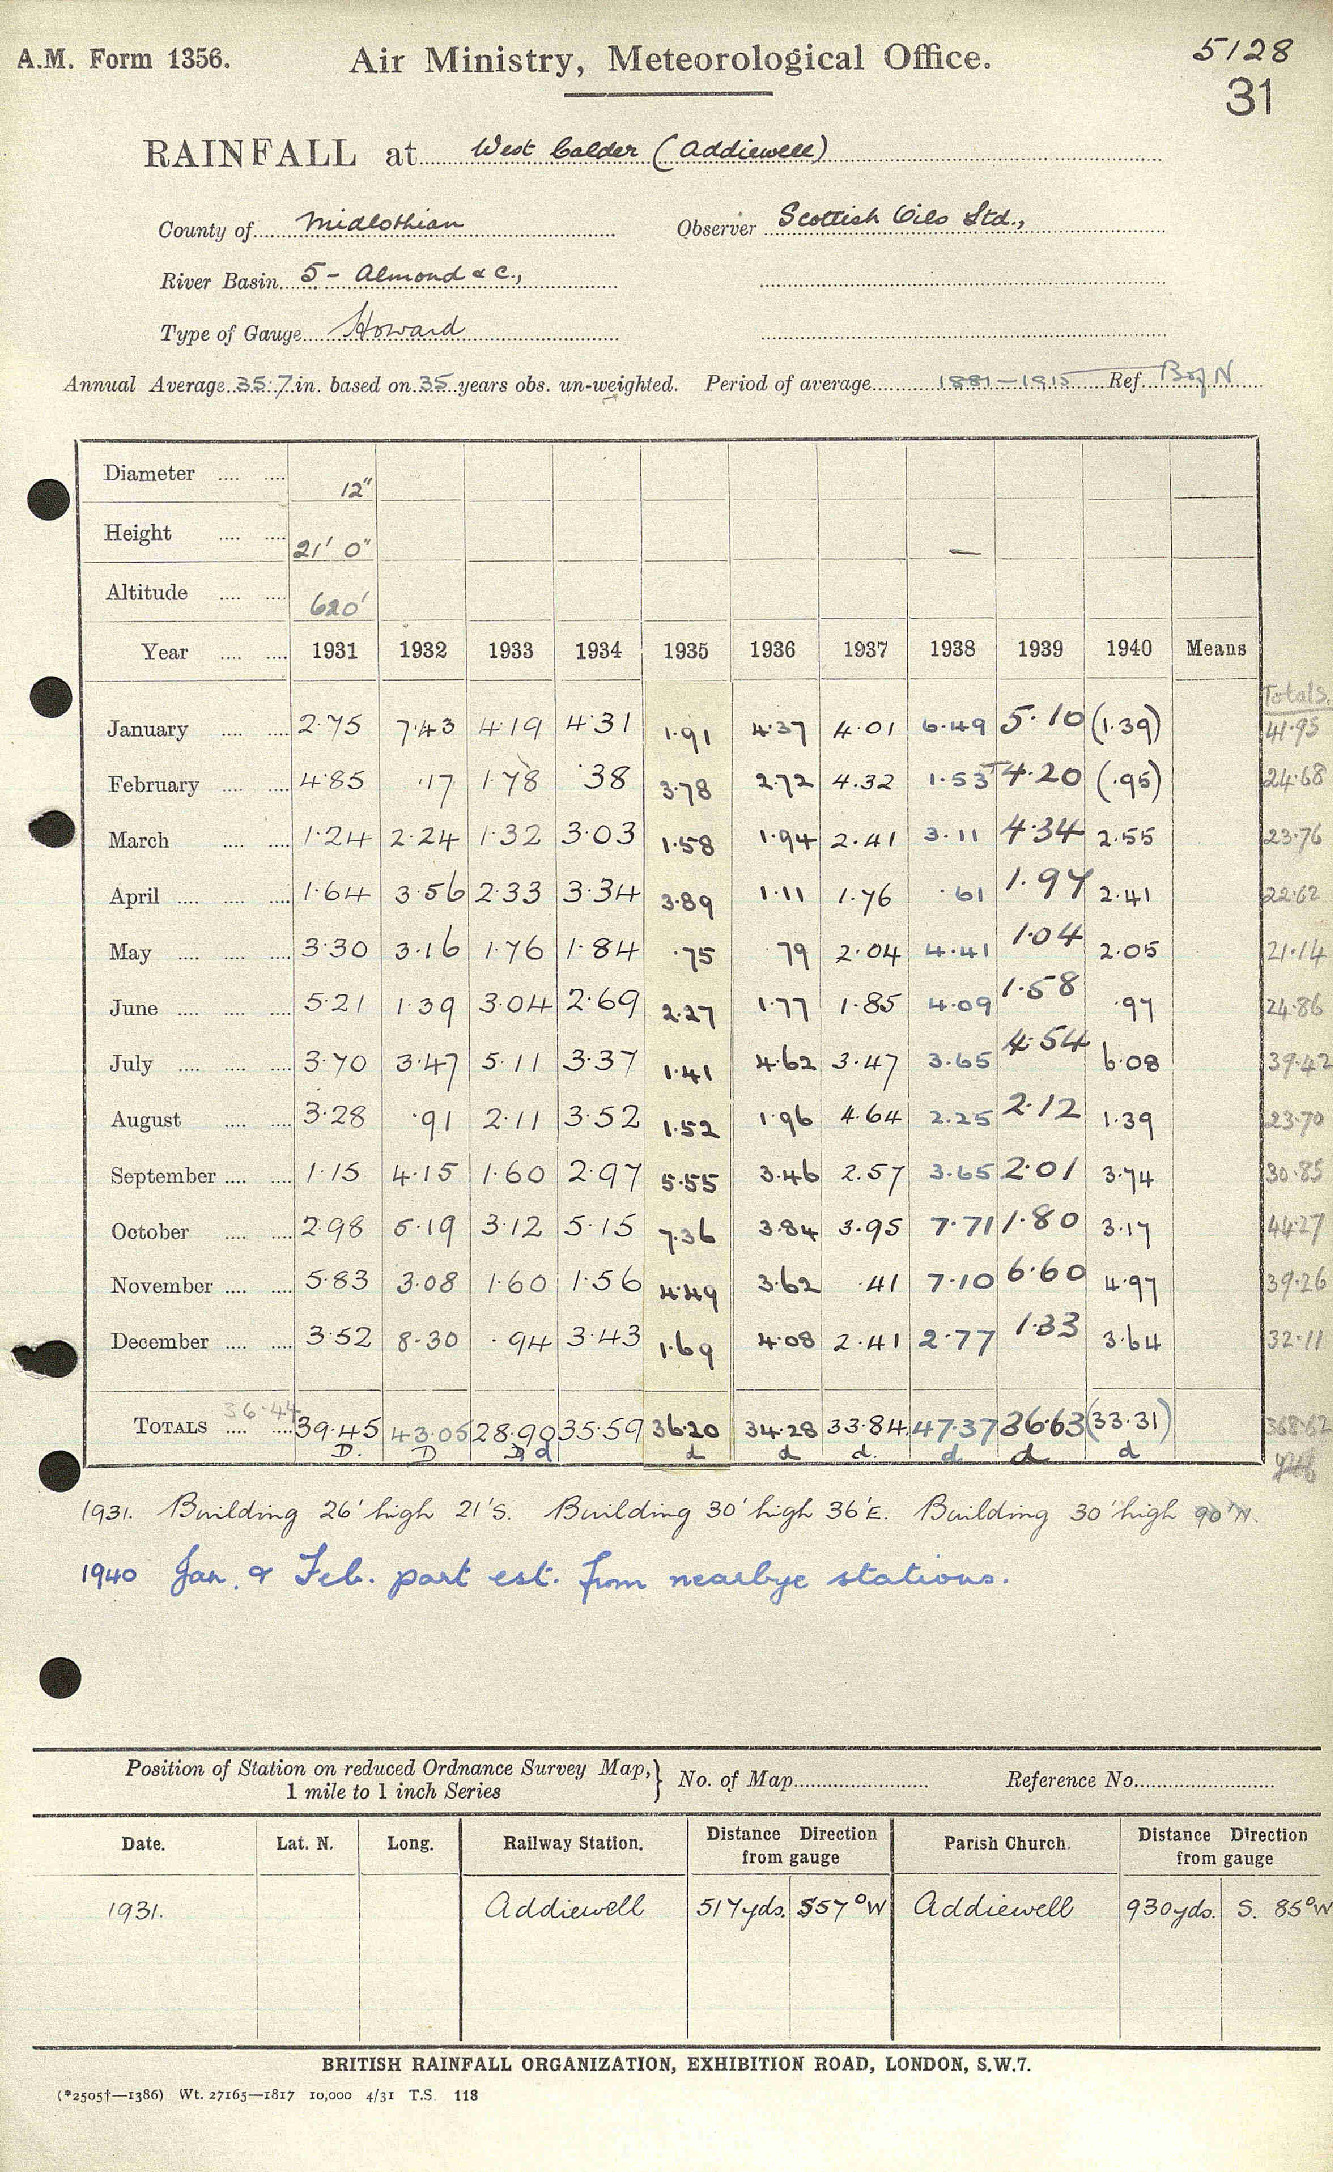 A.M. Form 1356.
Air Ministry, Meteorological Office.
5128
31
RAINFALL at West Calder (Addiewell)
County of Midlothian Observer Scottish Oils Ltd.,
River Basin 5 - Almond &c.,
Type of Gauge Howard
Annual Average 35.7 in. based on 35 years obs. un-weighted. Period of average 1881-1915 Ref. B of N
Diameter 12"
Height 21' 0" —
Altitude 620'
Year 1931 1932 1933 1934 1935 1936 1937 1938 1939 1940 Means Totals.
January 2.75 7.43 4.19 4.31 1.91 4.37 4.01 6.49 5.10 (1.39) 41.95
February 4.85 .17 1.78 .38 3.78 2.72 4.32 1.53 4.20 (.95) 24.68
March 1.24 2.24 1.32 3.03 1.58 1.94 2.41 3.11 4.34 2.55 23.76
April 1.64 3.56 2.33 3.34 3.89 1.11 1.76 .61 1.97 2.41 22.62
May 3.30 3.16 1.76 1.84 .75 .79 2.04 4.41 1.04 2.05 21.14
June 5.21 1.39 3.04 2.69 2.27 1.77 1.85 4.09 1.58 .97 24.86
July 3.70 3.47 5.11 3.37 1.41 4.62 3.47 3.65 4.54 6.08 39.42
August 3.28 .91 2.11 3.52 1.52 1.96 4.64 2.25 2.12 1.39 23.70
September 1.15 4.15 1.60 2.97 5.55 3.46 2.57 3.65 2.01 3.74 30.85
October 2.98 5.19 3.12 5.15 7.36 3.84 3.95 7.71 1.80 3.17 44.27
November 5.83 3.08 1.60 1.56 4.49 3.62 .41 7.10 6.60 4.97 39.26
December 3.52 8.30 .94 3.43 1.69 4.08 2.41 2.77 1.33 3.64 32.11
TOTALS 36.44 39.45 43.05 28.90 35.59 36.20 34.28 33.84 47.37 36.63 (33.31) 368.62
D. D D d d d d. d d d
1931. Building 26' high 21' S. Building 30' high 36' E. Building 30' high 90' N.
1940 Jan. & Feb. part est. from nearbye stations.
Position of Station on reduced Ordnance Survey Map,} No. of Map Reference No.
1 mile to 1 inch Series
Date. Lat. N. Long. Railway Station. Distance Direction from gauge Parish Church. Distance Direction from gauge
1931. Addiewell 517 yds. S 57° W Addiewell 930 yds. S. 85° W
BRITISH RAINFALL ORGANIZATION, EXHIBITION ROAD, LONDON, S.W.7.
(*2505†—1386) Wt. 27165—1817 10,000 4/31 T.S. 118